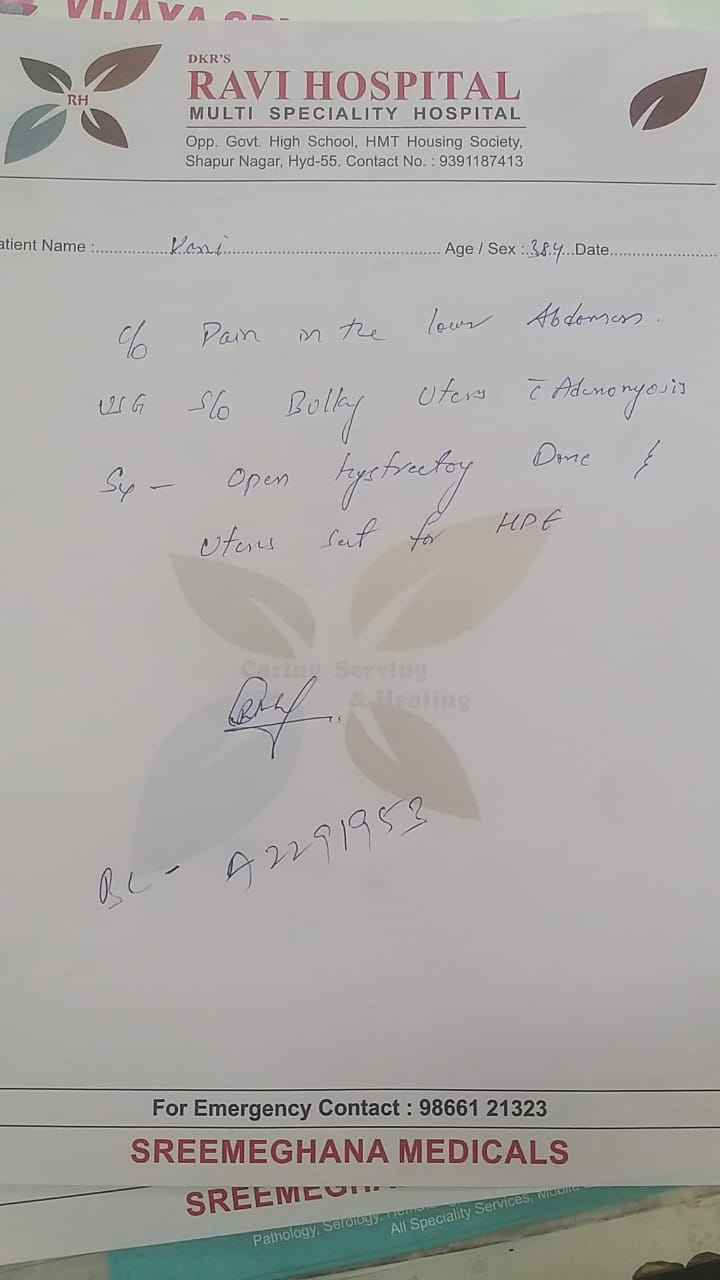 VIJAYA
DKR'S
RH
RAVI HOSPITAL
MULTI SPECIALITY HOSPITAL
Opp. Govt. High School, HMT Housing Society,
Shapur Nagar, Hyd-55. Contact No. : 9391187413
atient Name :.............Vani............. Age / Sex :.38y...Date.............
c/o Pain in the lower Abdomen.
USG S/o Bulky Uterus c̄ Adenomyosis
Sx - Open hystrectoy Done &
Uterus sent for HPE
Caring, Serving
& Healing
BL - A2291953
For Emergency Contact : 98661 21323
SREEMEGHANA MEDICALS
Pathology, Serology,
All Speciality Services,